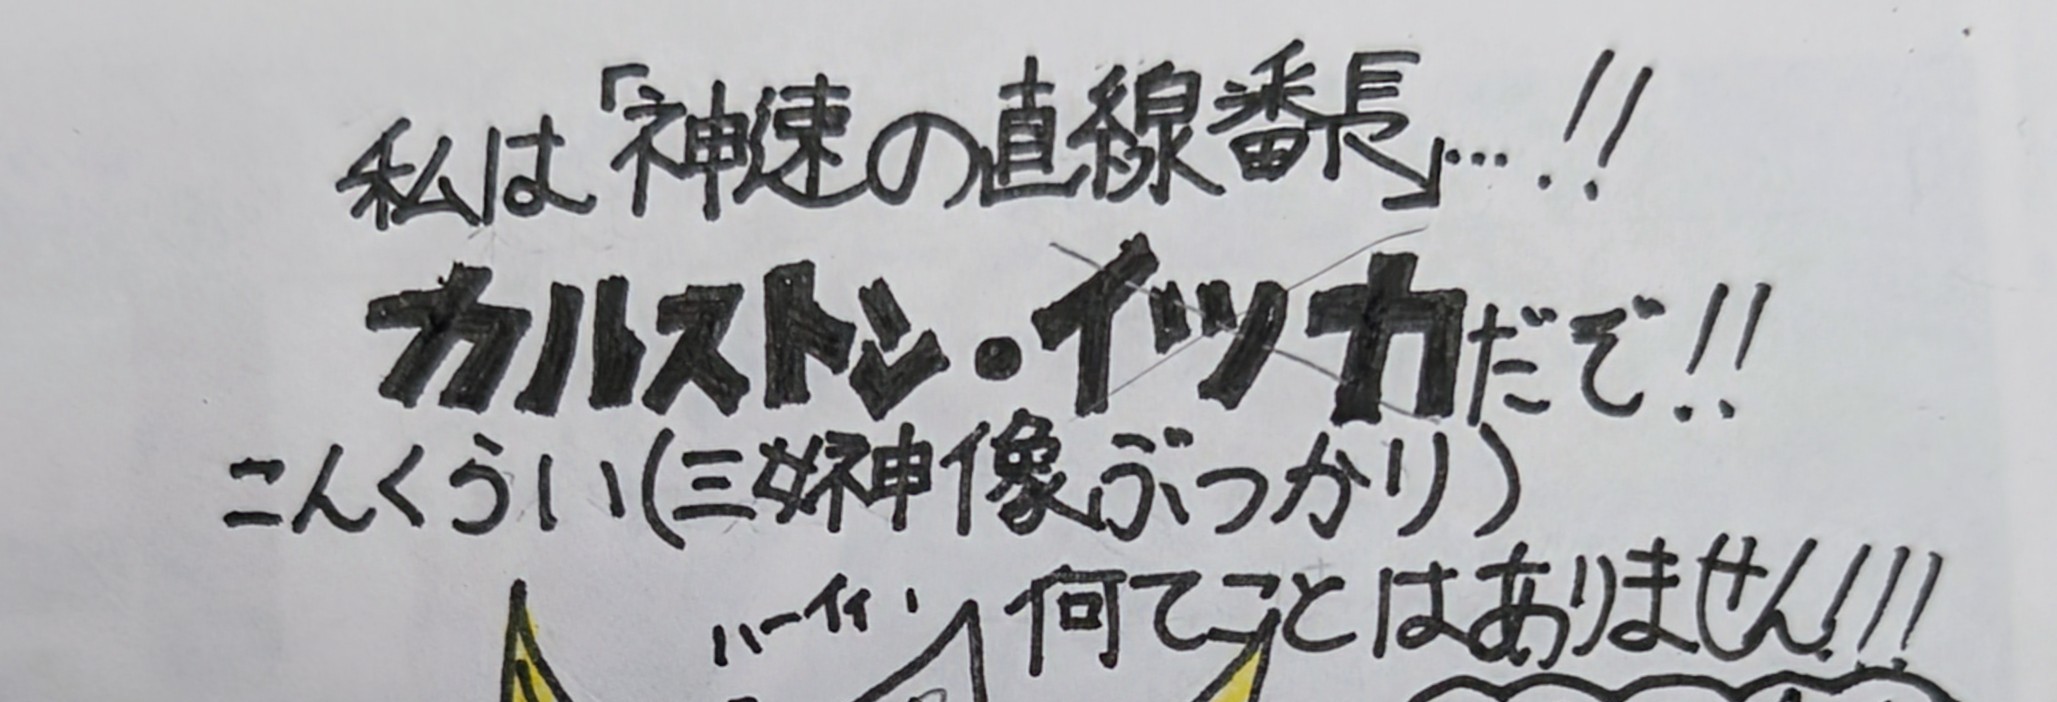 私は「神速の直線番長」…!!
カルストン・イツカだぞ!!
こんくらい(三女神像ぶつかり)
何てことはありません!!!
ハーイィ